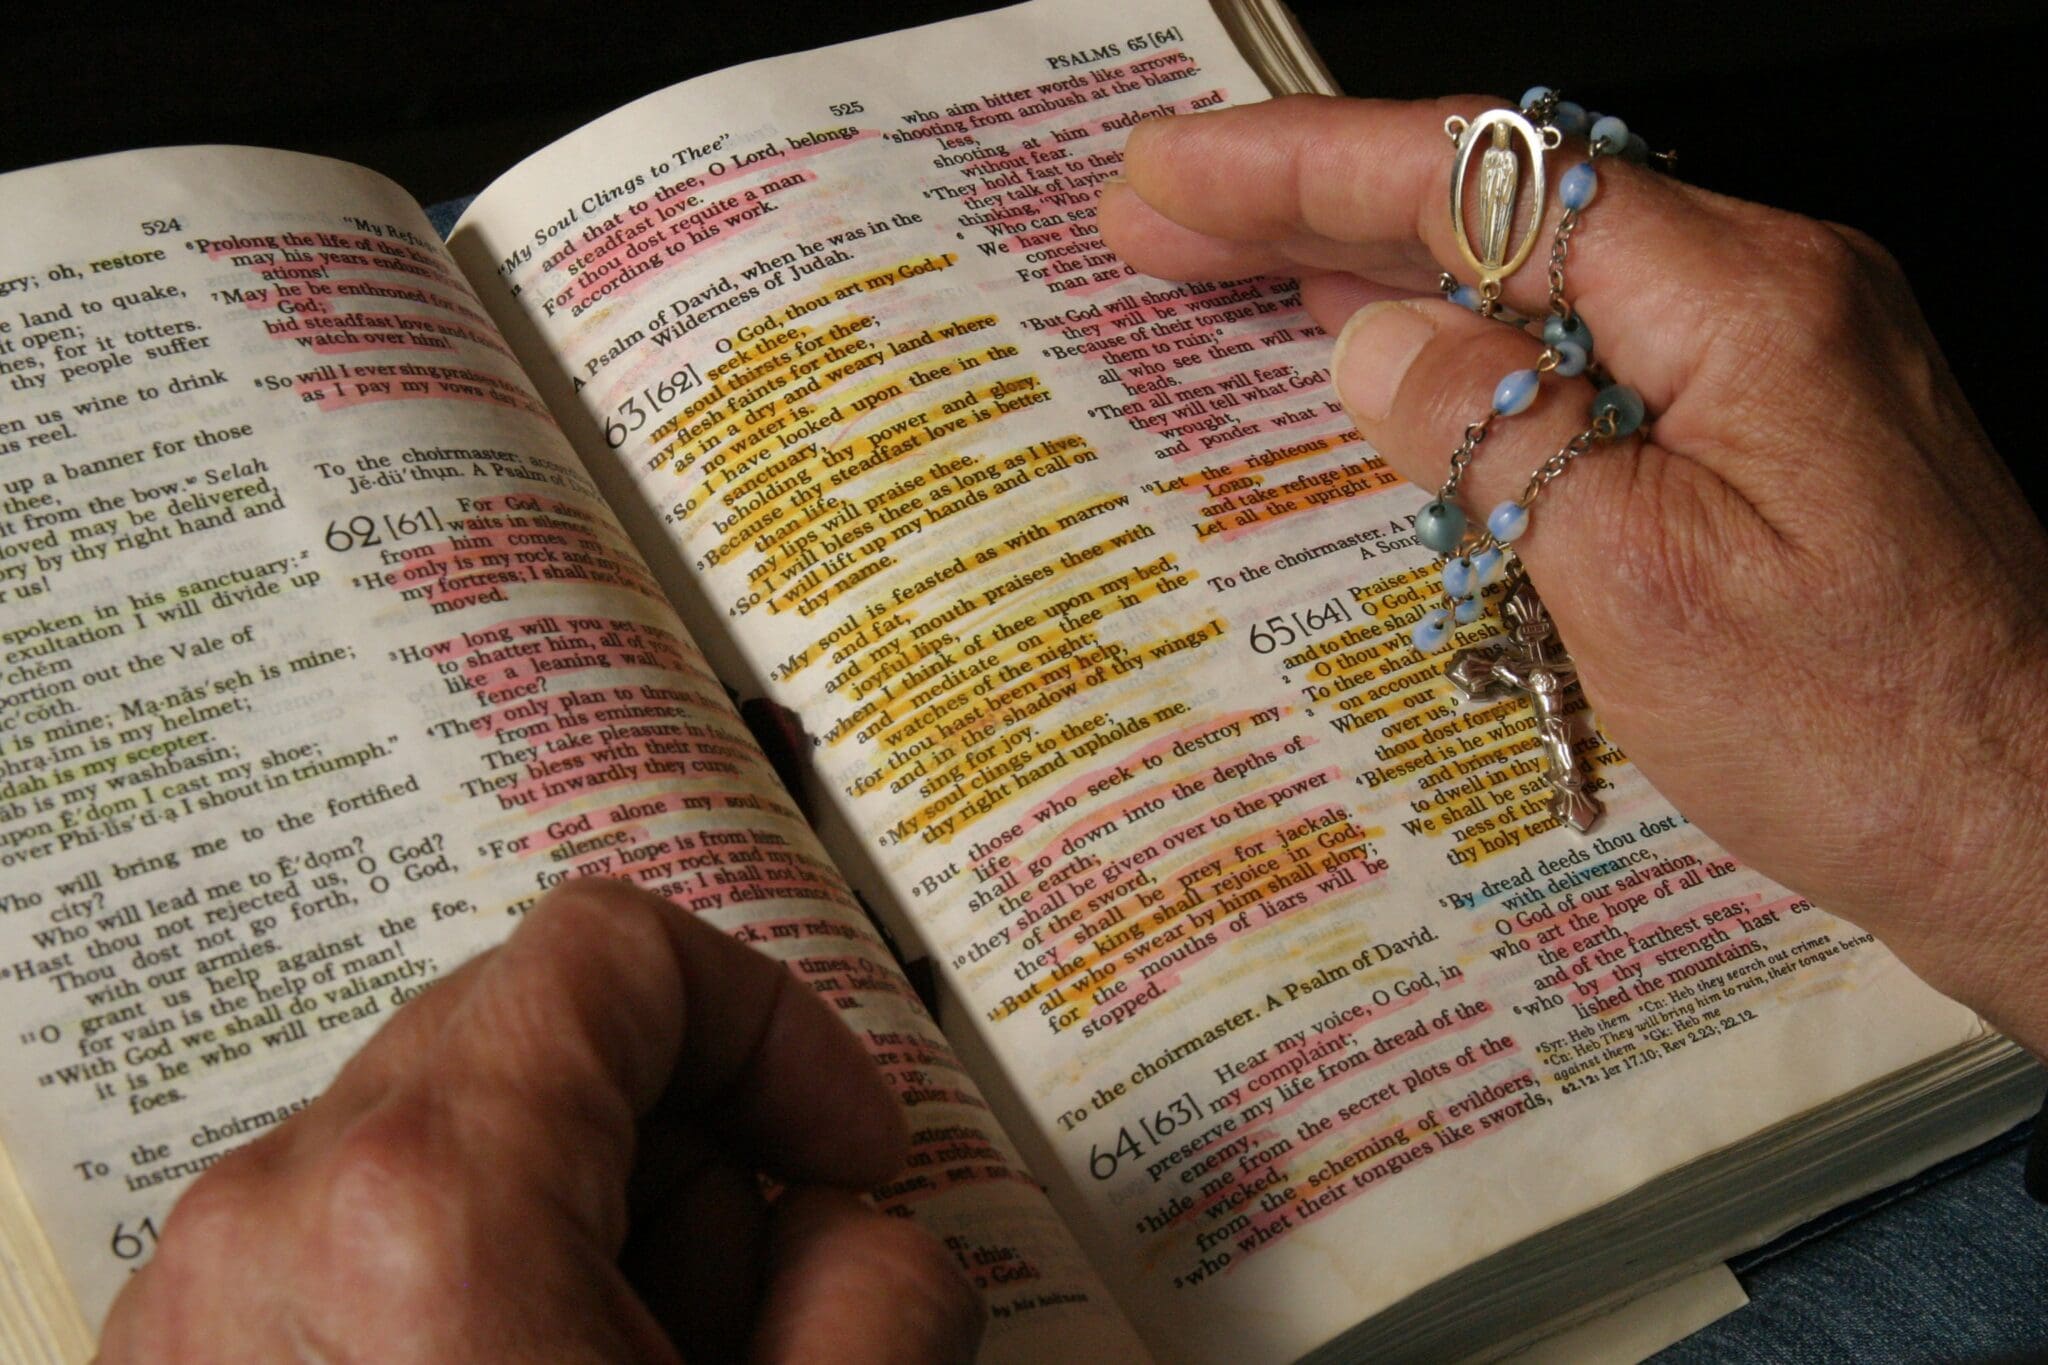 524
"My Refu
gry; oh, restore
e land to quake,
it open;
hes, for it totters.
thy people suffer
en us wine to drink
us reel.
up a banner for those
thee,
it from the bow. Selah
loved may be delivered,
ory by thy right hand and
r us!
spoken in his sanctuary:
exultation I will divide up
chĕm
portion out the Vale of
c'cŏth.
is mine; Mạ·năs'sẹh is mine;
phrạ·im is my helmet;
dah is my scepter.
ab is my washbasin;
upon Ē'dom I cast my shoe;
over Phi·lis'ti·ạ I shout in triumph."
Who will bring me to the fortified
city?
Who will lead me to Ē'dom?
10 Hast thou not rejected us, O God?
Thou dost not go forth, O God,
with our armies.
11 O grant us help against the foe,
for vain is the help of man!
12 With God we shall do valiantly;
it is he who will tread down
foes.
To the choirmaste
instrum
61
6 Prolong the life of the king
may his years endure
ations!
7 May he be enthroned for
God;
bid steadfast love and
watch over him!
8 So will I ever sing praises to
as I pay my vows day
To the choirmaster:
Jĕ·dü'thun. A Psalm of
62[61] For God alone
waits in silence
from him comes my
2 He only is my rock and my
my fortress; I shall not be
moved.
3 How long will you set
to shatter him, all of
like a leaning wall,
fence?
4 They only plan to thrust
from his eminence.
They take pleasure in
They bless with their mou
but inwardly they curse.
5 For God alone my soul
silence,
for my hope is from him.
6 is my rock and my
ress; I shall not be
my deliverance
ck, my refuge
times, O
art before
us.
but a
up;
this:
God;
by his holiness
"My Soul Clings to Thee"
525
PSALMS 65 [64]
12 and that to thee, O Lord, belongs
steadfast love.
For thou dost requite a man
according to his work.
A Psalm of David, when he was in the
Wilderness of Judah.
63[62] O God, thou art my God, I
seek thee,
my soul thirsts for thee;
my flesh faints for thee,
as in a dry and weary land where
no water is.
2 So I have looked upon thee in the
sanctuary,
beholding thy power and glory.
3 Because thy steadfast love is better
than life,
my lips will praise thee.
4 So I will bless thee as long as I live;
I will lift up my hands and call on
thy name.
5 My soul is feasted as with marrow
and fat,
and my mouth praises thee with
joyful lips,
6 when I think of thee upon my bed,
and meditate on thee in the
watches of the night;
7 for thou hast been my help,
and in the shadow of thy wings I
sing for joy.
8 My soul clings to thee;
thy right hand upholds me.
9 But those who seek to destroy my
life
shall go down into the depths of
the earth;
10 they shall be given over to the power
of the sword,
they shall be prey for jackals.
11 But the king shall rejoice in God;
all who swear by him shall glory;
for the mouths of liars will be
stopped.
To the choirmaster. A Psalm of David.
64[63] Hear my voice, O God, in
my complaint;
preserve my life from dread of the
enemy,
2 hide me from the secret plots of the
wicked,
from the scheming of evildoers,
3 who whet their tongues like swords,
who aim bitter words like arrows,
4 shooting from ambush at the blame-
less,
shooting at him suddenly and
without fear.
5 They hold fast to their
they talk of laying
thinking, "Who
6 Who can sea
We have tho
conceived
For the inw
man are d
7 But God will shoot his arrow
they will be wounded sud
8 Because of their tongue he wi
them to ruin;
all who see them will wa
heads.
9 Then all men will fear;
they will tell what God
wrought,
and ponder what h
10 Let the righteous re
LORD,
and take refuge in hi
Let all the upright in
To the choirmaster. A P
A Song
65[64] Praise is d
O God, in
and to thee shall
2 O thou who
To thee shall flesh
3 on account
When our
over us,
thou dost forgive
4 Blessed is he whom
and bring nea
to dwell in thy rts!
We shall be sat d wi
ness of thy se,
thy holy tem
5 By dread deeds thou dost a
with deliverance,
O God of our salvation,
who art the hope of all the
the earth,
and of the farthest seas;
6 who by thy strength hast es
lished the mountains,
Syr: Heb them Cn: Heb they search out crimes
Cn: Heb They will bring him to ruin, their tongue being
against them Gk: Heb me
62.12: Jer 17.10; Rev 2.23; 22.12.